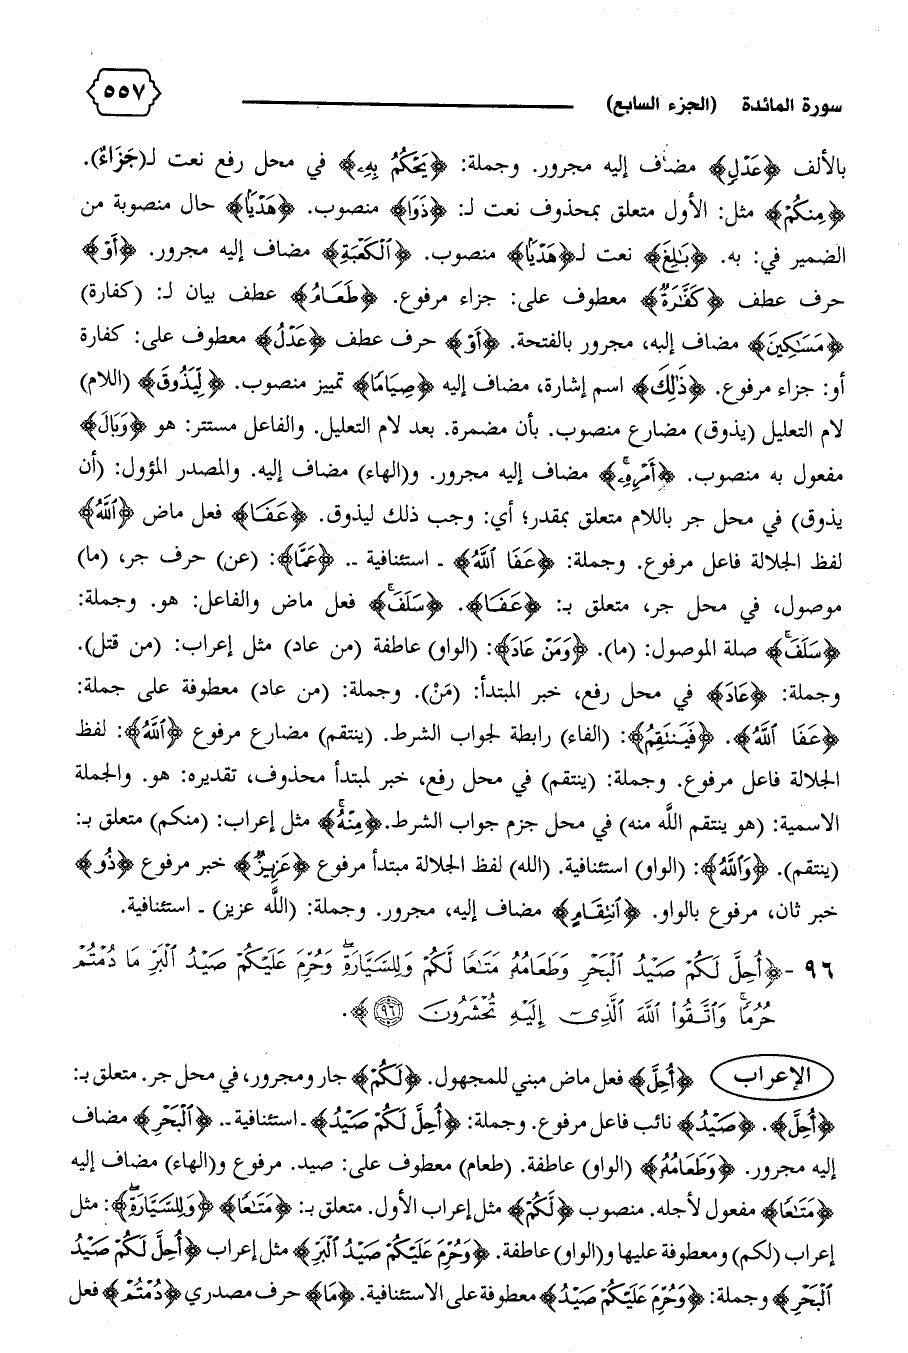 سورة المائدة (الجزء السابع) ٥٥٧
بالألف ﴿عَدْلٍ﴾ مضاف إليه مجرور. وجملة: ﴿يَحْكُمُ بِهِۦ﴾ في محل رفع نعت لـ(جَزَاءٌ).
﴿مِنكُمْ﴾ مثل: الأول متعلق بمحذوف نعت لـ: ﴿ذَوَا﴾ منصوب. ﴿هَدْيًا﴾ حال منصوبة من
الضمير في: به. ﴿بَٰلِغَ﴾ نعت لـ﴿هَدْيًا﴾ منصوب. ﴿ٱلْكَعْبَةِ﴾ مضاف إليه مجرور. ﴿أَوْ﴾
حرف عطف ﴿كَفَّٰرَةٌ﴾ معطوف على: جزاء مرفوع. ﴿طَعَامُ﴾ عطف بيان لـ: (كفارة)
﴿مَسَٰكِينَ﴾ مضاف إليه، مجرور بالفتحة. ﴿أَوْ﴾ حرف عطف ﴿عَدْلُ﴾ معطوف على: كفارة
أو: جزاء مرفوع. ﴿ذَٰلِكَ﴾ اسم إشارة، مضاف إليه ﴿صِيَامًا﴾ تمييز منصوب. ﴿لِّيَذُوقَ﴾ (اللام)
لام التعليل (يذوق) مضارع منصوب. بأن مضمرة. بعد لام التعليل. والفاعل مستتر: هو ﴿وَبَالَ﴾
مفعول به منصوب. ﴿أَمْرِهِۦ﴾ مضاف إليه مجرور. و(الهاء) مضاف إليه. والمصدر المؤول: (أن
يذوق) في محل جر باللام متعلق بمقدر؛ أي: وجب ذلك ليذوق. ﴿عَفَا﴾ فعل ماض ﴿ٱللَّهُ﴾
لفظ الجلالة فاعل مرفوع. وجملة: ﴿عَفَا ٱللَّهُ﴾ ـ استئنافية ـ. ﴿عَمَّا﴾: (عن) حرف جر، (ما)
موصول، في محل جر، متعلق بـ: ﴿عَفَا﴾. ﴿سَلَفَ﴾ فعل ماض والفاعل: هو. وجملة:
﴿سَلَفَ﴾ صلة الموصول: (ما). ﴿وَمَنْ عَادَ﴾: (الواو) عاطفة (من عاد) مثل إعراب: (من قتل).
وجملة: ﴿عَادَ﴾ في محل رفع، خبر المبتدأ: (مَنْ). وجملة: (من عاد) معطوفة على جملة:
﴿عَفَا ٱللَّهُ﴾. ﴿فَيَنتَقِمُ﴾: (الفاء) رابطة لجواب الشرط. (ينتقم) مضارع مرفوع ﴿ٱللَّهُ﴾: لفظ
الجلالة فاعل مرفوع. وجملة: (ينتقم) في محل رفع، خبر لمبتدأ محذوف، تقديره: هو. والجملة
الاسمية: (هو ينتقم اللَّه منه) في محل جزم جواب الشرط.﴿مِنْهُ﴾ مثل إعراب: (منكم) متعلق بـ:
(ينتقم). ﴿وَٱللَّهُ﴾: (الواو) استئنافية. (الله) لفظ الجلالة مبتدأ مرفوع ﴿عَزِيزٌ﴾ خبر مرفوع ﴿ذُو﴾
خبر ثان، مرفوع بالواو. ﴿ٱنتِقَامٍ﴾ مضاف إليه، مجرور. وجملة: (اللَّه عزيز) ـ استئنافية.
٩٦ -﴿أُحِلَّ لَكُمْ صَيْدُ ٱلْبَحْرِ وَطَعَامُهُۥ مَتَٰعًا لَّكُمْ وَلِلسَّيَّارَةِ ۖ وَحُرِّمَ عَلَيْكُمْ صَيْدُ ٱلْبَرِّ مَا دُمْتُمْ
حُرُمًا ۗ وَٱتَّقُوا۟ ٱللَّهَ ٱلَّذِىٓ إِلَيْهِ تُحْشَرُونَ ٩٦﴾.
الإعراب ﴿أُحِلَّ﴾ فعل ماض مبني للمجهول. ﴿لَكُمْ﴾ جار ومجرور، في محل جر. متعلق بـ:
﴿أُحِلَّ﴾. ﴿صَيْدُ﴾ نائب فاعل مرفوع. وجملة: ﴿أُحِلَّ لَكُمْ صَيْدُ﴾ ـ استئنافية ـ. ﴿ٱلْبَحْرِ﴾ مضاف
إليه مجرور. ﴿وَطَعَامُهُۥ﴾ (الواو) عاطفة. (طعام) معطوف على: صيد. مرفوع و(الهاء) مضاف إليه
﴿مَتَٰعًا﴾ مفعول لأجله. منصوب ﴿لَّكُمْ﴾ مثل إعراب الأول. متعلق بـ: ﴿مَتَٰعًا﴾ ﴿وَلِلسَّيَّارَةِ ۖ﴾: مثل
إعراب (لكم) ومعطوفة عليها و(الواو) عاطفة. ﴿وَحُرِّمَ عَلَيْكُمْ صَيْدُ ٱلْبَرِّ﴾ مثل إعراب ﴿أُحِلَّ لَكُمْ صَيْدُ
ٱلْبَحْرِ﴾ وجملة: ﴿وَحُرِّمَ عَلَيْكُمْ صَيْدُ﴾ معطوفة على الاستئنافية. ﴿مَا﴾ حرف مصدري ﴿دُمْتُمْ﴾ فعل